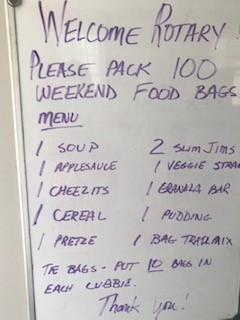 WELCOME ROTARY!
PLEASE PACK 100
WEEKEND FOOD BAGS
MENU
1 SOUP 2 SLIM JIMS
1 APPLESAUCE 1 VEGGIE STRAW
1 CHEEZITS 1 GRANOLA BAR
1 CEREAL 1 PUDDING
1 PRETZE 1 BAG TRAILMIX
TIE BAGS - PUT 10 BAGS IN
EACH CUBBIE.
Thank you!